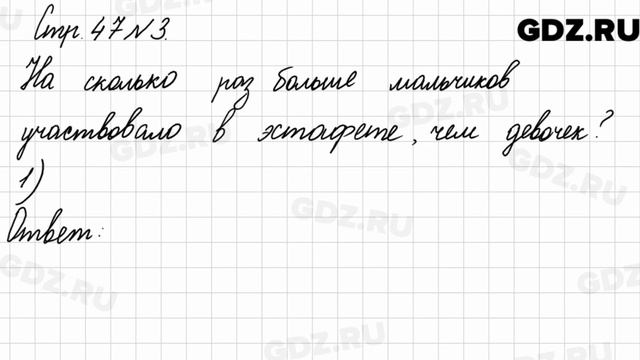 Стр. 47 № 3.
GDZ.RU
На сколько раз больше мальчиков
участвовало в эстафете, чем девочек?
1)
Ответ:
GDZ.RU
GDZ.RU
GDZ.RU
GDZ.RU
GDZ.RU
GDZ.RU
GDZ.RU
GDZ.RU